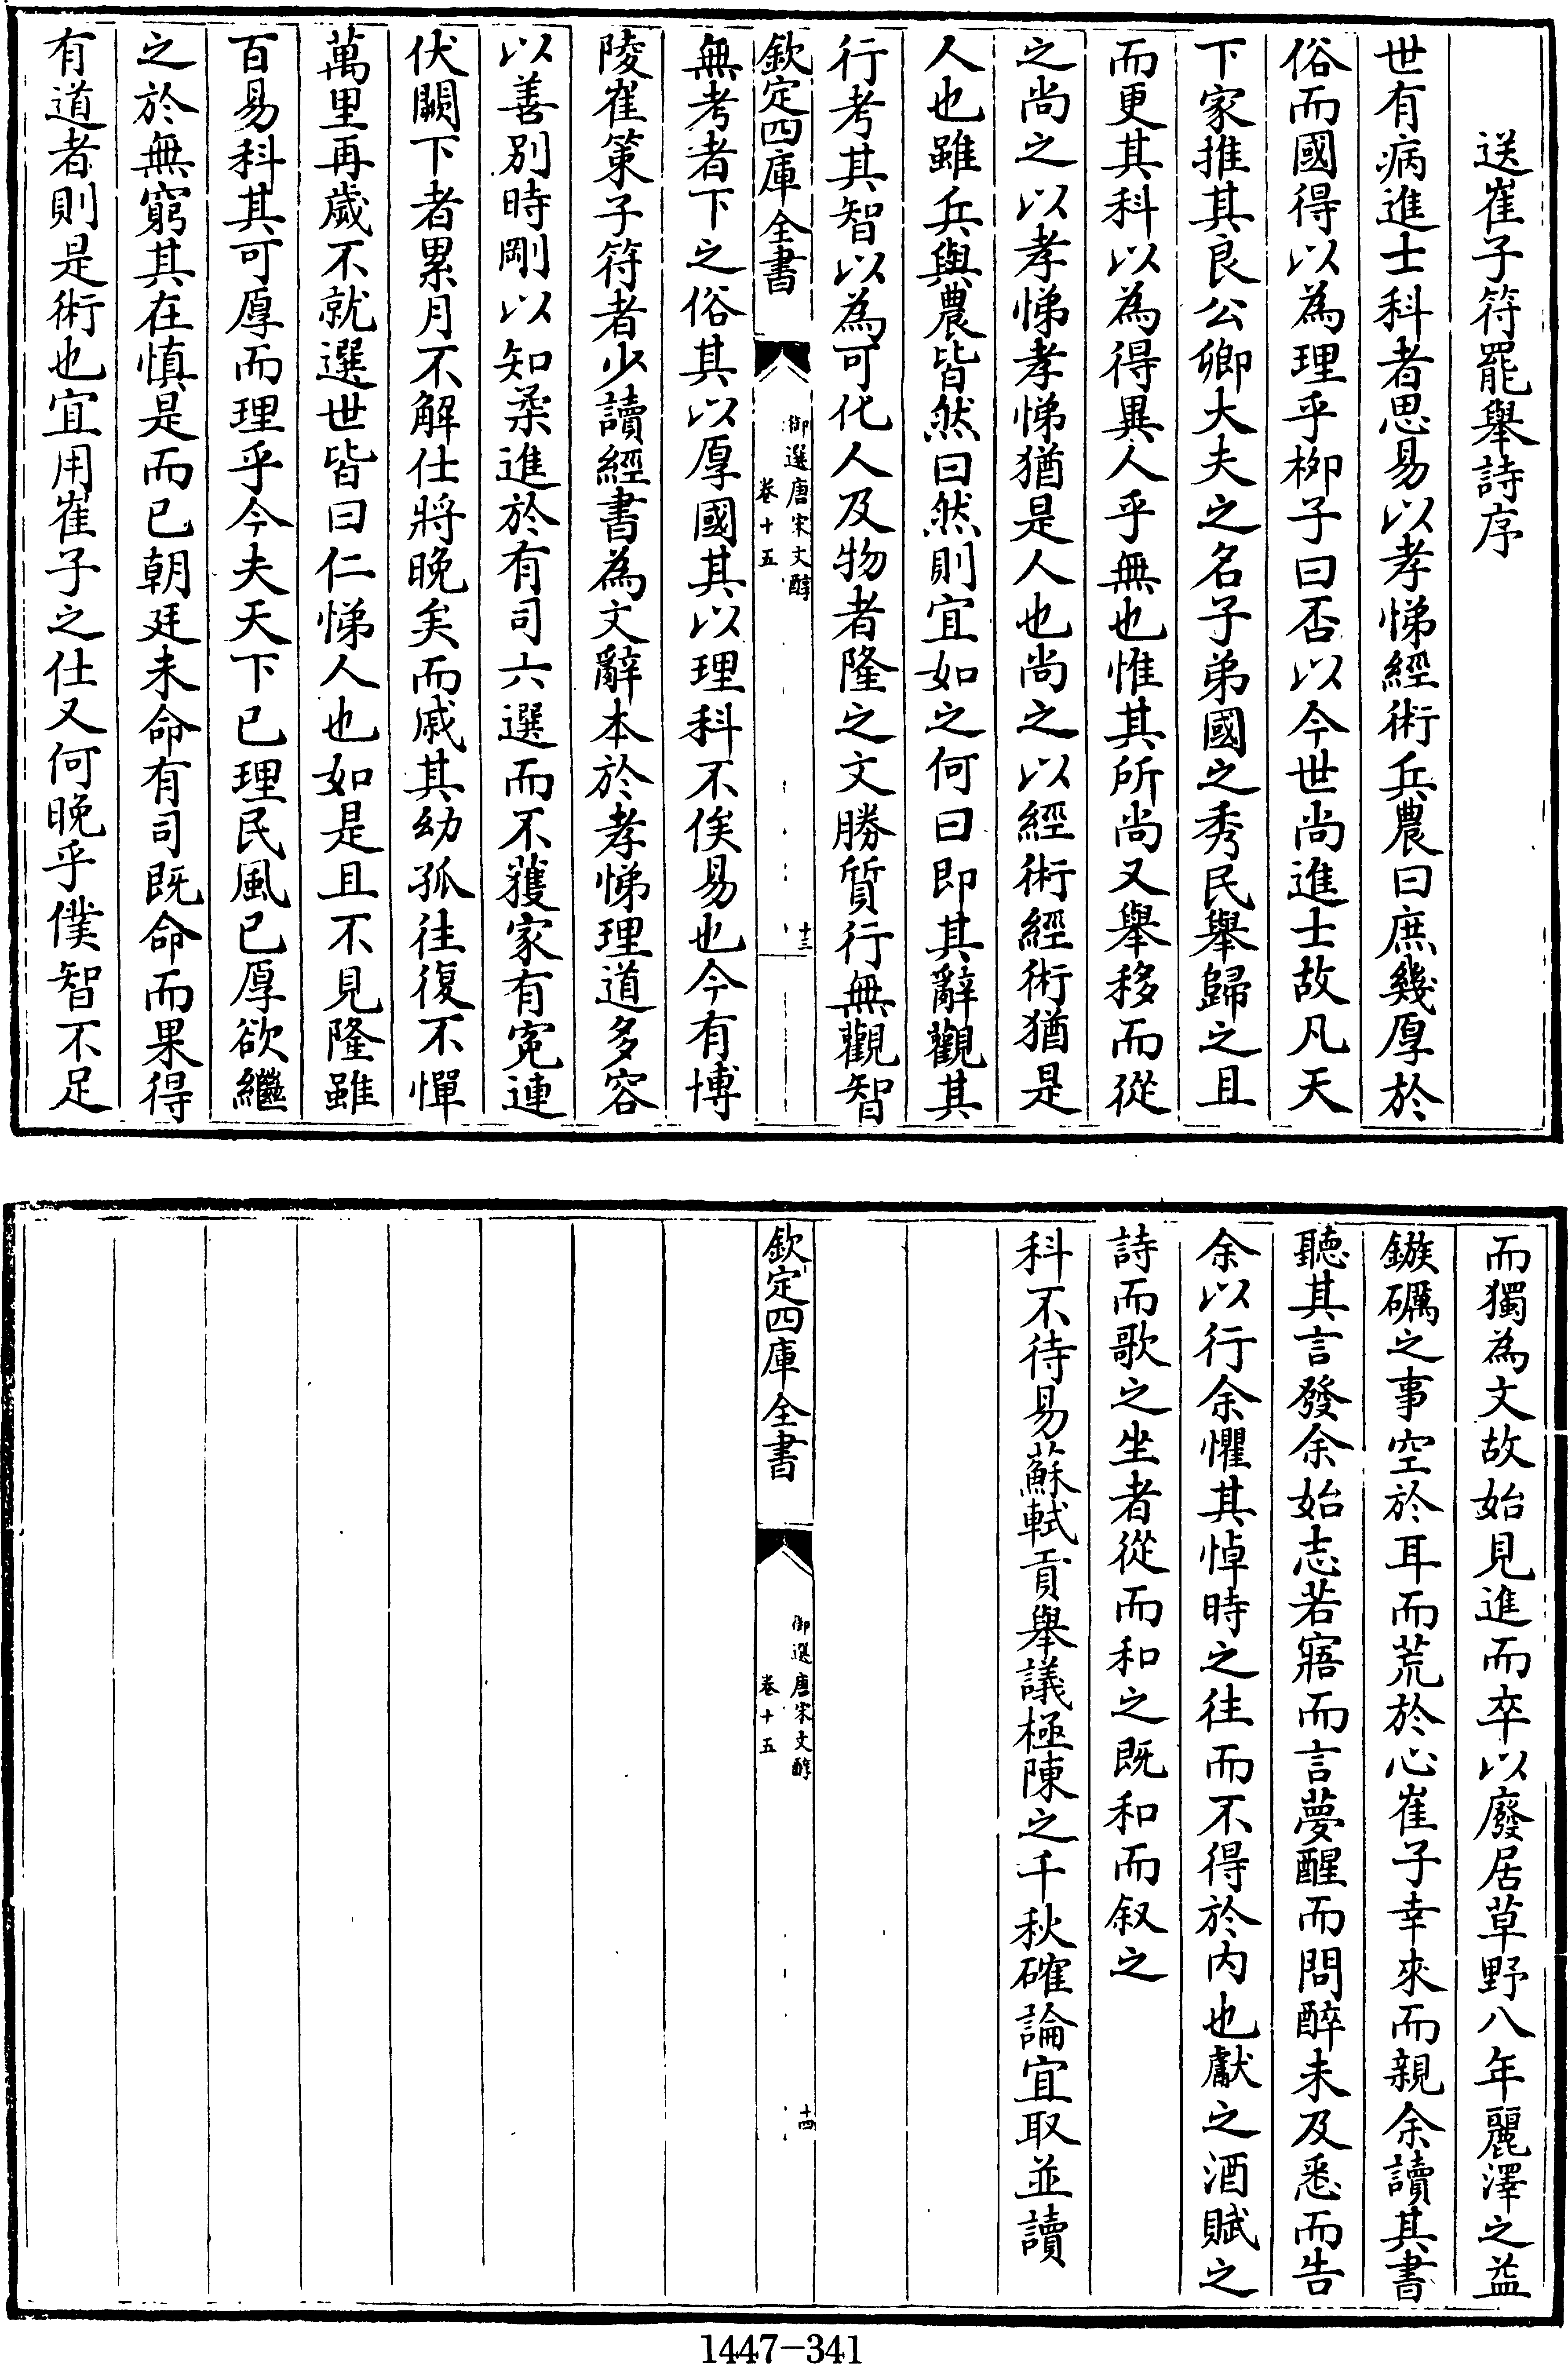 送崔子符罷舉詩序
世有病進士科者思易以孝悌經術兵農曰庶幾厚於
俗而國得以為理乎柳子曰否以今世尚進士故凡天
下家推其良公卿大夫之名子弟國之秀民舉歸之且
而更其科以為得異人乎無也惟其所尚又舉移而從
之尚之以孝悌孝悌猶是人也尚之以經術經術猶是
人也雖兵與農皆然曰然則宜如之何曰即其辭觀其
行考其智以為可化人及物者隆之文勝質行無觀智
欽定四庫全書
御選唐宋文醇
卷十五
十三
無考者下之俗其以厚國其以理科不俟易也今有博
陵崔策子符者少讀經書為文辭本於孝悌理道多容
以善別時剛以知柔進於有司六選而不獲家有冤連
伏闕下者累月不解仕將晚矣而戚其幼孤往復不憚
萬里再歲不就選世皆曰仁悌人也如是且不見隆雖
百易科其可厚而理乎今夫天下已理民風已厚欲繼
之於無窮其在慎是而已朝廷未命有司既命而果得
有道者則是術也宜用崔子之仕又何晚乎僕智不足
而獨為文故始見進而卒以廢居草野八年麗澤之益
鏃礪之事空於耳而荒於心崔子幸來而親余讀其書
聽其言發余始志若寤而言夢醒而問醉未及悉而告
余以行余懼其悼時之往而不得於內也獻之酒賦之
詩而歌之坐者從而和之既和而叙之
科不待易蘇軾貢舉議極陳之千秋確論宜取並讀
欽定四庫全書
御選唐宋文醇
卷十五
十四
1447-341